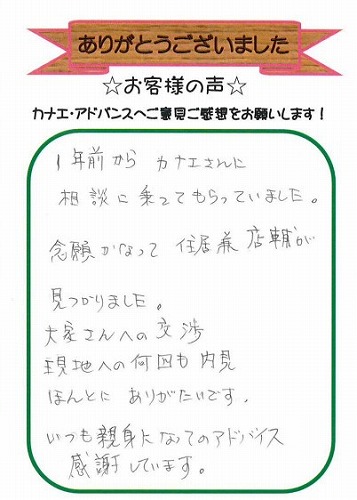 ありがとうございました
☆お客様の声☆
カナエ・アドバンスへご意見ご感想をお願いします！
1年前から カナエさんに
相談に乗ってもらっていました。
念願かなって 住居兼店舗が
見つかりました。
大家さんへの交渉
現地への何回も内見
ほんとに ありがたいです。
いつも親身になってのアドバイス
感謝しています。